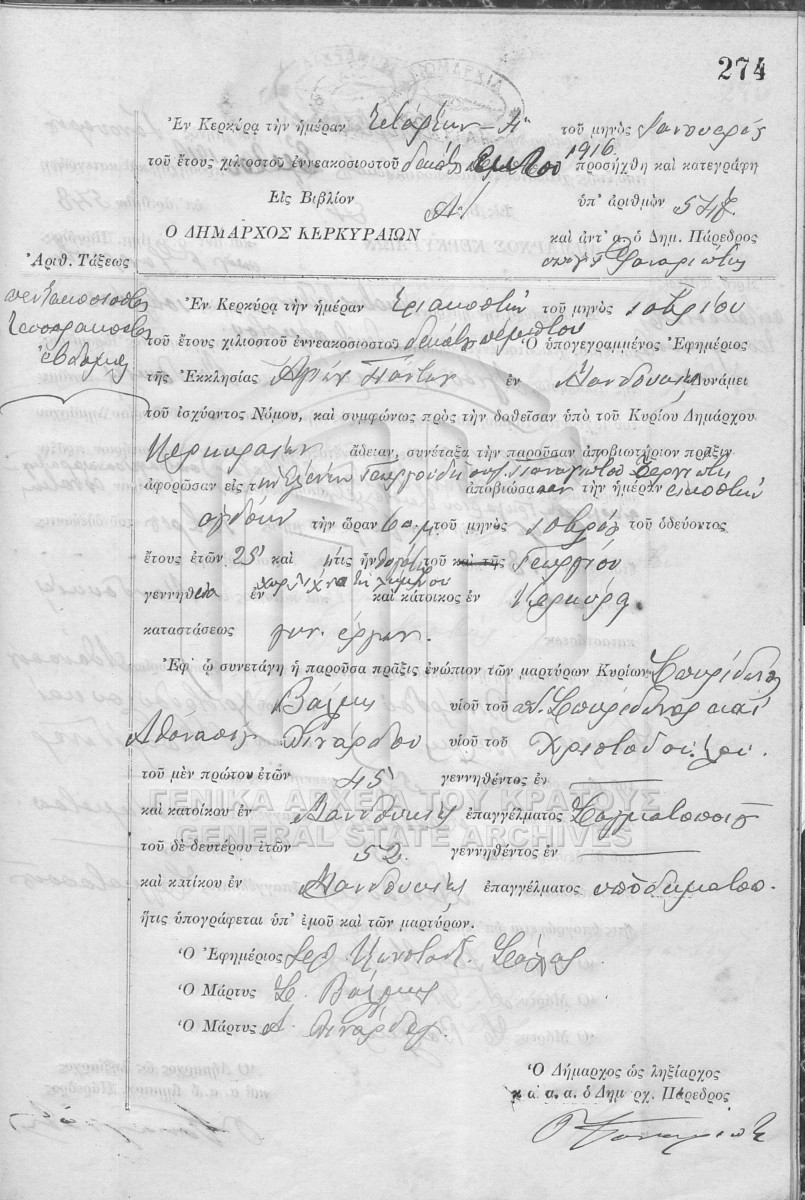 274
Ἐν Κερκύρᾳ τὴν ἡμέραν τετάρτην - 4ην τοῦ μηνὸς Ἰανουαρίου
τοῦ ἔτους χιλιοστοῦ ἐννεακοσιοστοῦ δεκάτου ἕκτου 1916 προσήχθη καὶ κατεγράφη
Εἰς Βιβλίον Α/ ὑπ' ἀριθμὸν 547
Ο ΔΗΜΑΡΧΟΣ ΚΕΡΚΥΡΑΙΩΝ καὶ ἀντ' α.ὁ Δημ. Πάρεδρος
Ἀριθ. Τάξεως
πεντακοσιοστὸς
τεσσαρακοστὸς
ἕβδομος
Ἐν Κερκύρᾳ τὴν ἡμέραν τριακοστὴν τοῦ μηνὸς
τοῦ ἔτους χιλιοστοῦ ἐννεακοσιοστοῦ δεκάτου πέμπτου Ὁ ὑπογεγραμμένος Ἐφημέριος
τῆς Ἐκκλησίας Ἁγίων Πάντων ἐν Μανδουκίῳ δυνάμει
τοῦ ἰσχύοντος Νόμου, καὶ συμφώνως πρὸς τὴν δοθεῖσαν ὑπὸ τοῦ Κυρίου Δημάρχου
Κερκυραίων ἄδειαν, συνέταξα τὴν παροῦσαν ἀποβιωτήριον πρᾶξιν
ἀφορῶσαν εἰς τὴν Ἑλένην Παναγιώτου ἀποβιώσασαν τὴν ἡμέραν εἰκοστὴν
ὀγδόην τὴν ὥραν 6 τοῦ μηνὸς τοῦ ὁδεύοντος
ἔτους ἐτῶν 25 καὶ ἥτις ἦν θυγάτηρ τοῦ καὶ τῆς Γεωργίου
γεννηθεῖσα ἐν καὶ κάτοικος ἐν Κερκύρᾳ
καταστάσεως
Ἐφ' ᾧ συνετάγη ἡ παροῦσα πρᾶξις ἐνώπιον τῶν μαρτύρων Κυρίων Σπυρίδωνος
Βάλμη υἱοῦ τοῦ Σπυρίδωνος καὶ
Ἀθανασίου Πινάρδου υἱοῦ τοῦ Χριστοδούλου.
τοῦ μὲν πρώτου ἐτῶν 45 γεννηθέντος ἐν
καὶ κατοίκου ἐν Μανδουκίῳ ἐπαγγέλματος Σαγματοποιὸς
τοῦ δὲ δευτέρου ἐτῶν 52 γεννηθέντος ἐν
καὶ κατίκου ἐν Μανδουκίῳ ἐπαγγέλματος ὑποδηματοπ.
ἥτις ὑπογράφεται ὑπ' ἐμοῦ καὶ τῶν μαρτύρων.
ΓΕΝΙΚΑ ΑΡΧΕΙΑ ΤΟΥ ΚΡΑΤΟΥΣ
GENERAL STATE ARCHIVES
Ὁ Ἐφημέριος
Ὁ Μάρτυς Σ. Βάλμης
Ὁ Μάρτυς Α. Πινάρδος
Ὁ Δήμαρχος ὡς ληξίαρχος
κ α. α. ὁ Δημ ρχ. Πάρεδρος